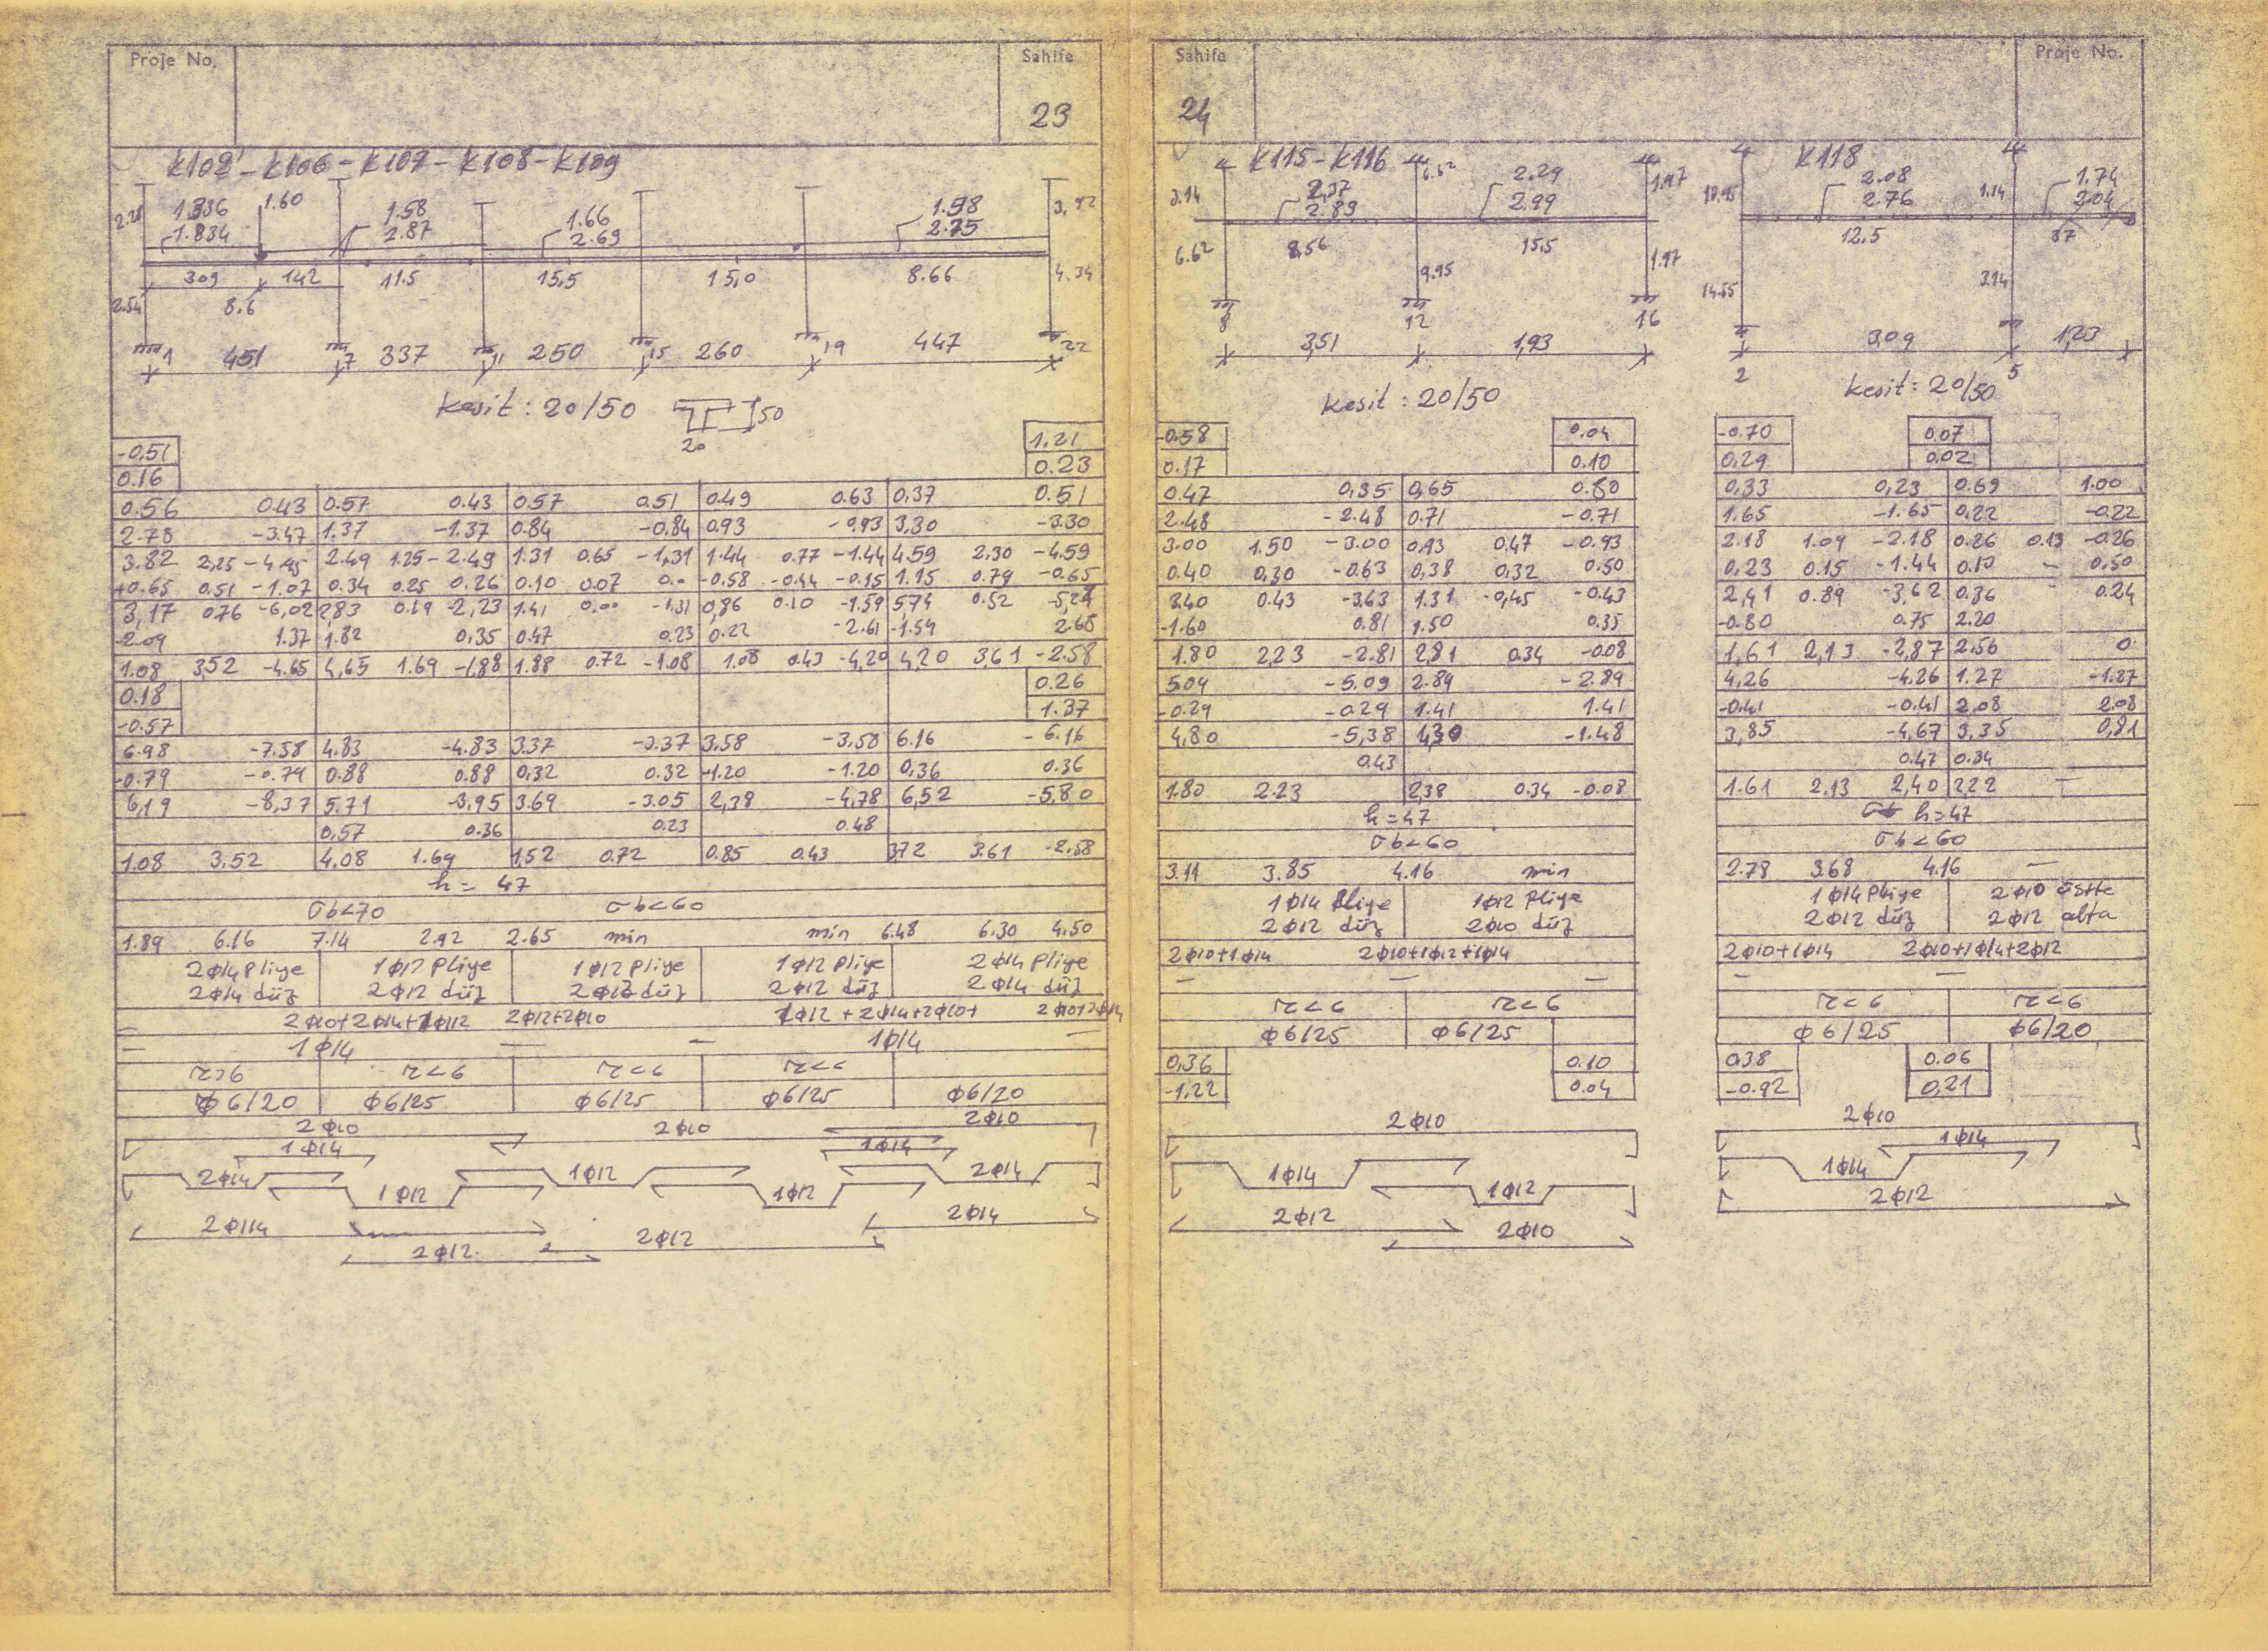 Proje No.
Sahife
23
K102' - K106 - K107 - K108 - K109
1.60
3,92
1.336
1.834
1.58
2.87
1.66
2.69
1.98
2.75
309 142 11.5 15,5 15,0 8.66 4.34
2.54
8.6
1 7 11 15 19 22
451 337 250 260 447
Kesit : 20/50
50
20
-0,51 1.21
0.16 0.23
0.56 0.43 0.57 0.43 0.57 0,51 0.49 0.63 0,37 0.51
2.78 -3.47 1.37 -1.37 0.84 -0.84 0.93 -0,93 3,30 -3.30
3.82 2,25 -4.45 2.49 1.25 -2.49 1.31 0.65 -1,31 1.44 0.77 -1.44 4.59 2,30 -4.59
+0.65 0,51 -1.07 0.34 0.25 0.26 0.10 0.07 0.- -0.58 -0.44 -0.15 1.15 0.79 -0.65
3,17 0.76 -6,02 2,83 0.19 -2,23 1.41 0.00 -1.31 0,86 0.10 -1.59 5,74 0.52 -5,24
-2.09 1.37 1.82 0,35 0.47 0.23 0.22 -2.61 -1.54 2.65
1.08 3,52 -4.65 4,65 1.69 -1,88 1.88 0.72 -1.08 1.08 0.43 -4,20 4,20 3,61 -2.58
0.18 0.26
-0.57 1.37
6.98 -7.58 4.83 -4.83 3.37 -3.37 3.58 -3,58 6.16 -6.16
-0.79 -0.79 0.88 0.88 0,32 0.32 -1.20 -1.20 0,36 0.36
6,19 -8,37 5.71 -3,95 3.69 -3.05 2,38 -4,78 6,52 -5,80
0,57 0.36 0.23 0.48
1.08 3.52 4.08 1.69 1,52 0.72 0.85 0.43 3,72 3.61 -2.58
h = 47
σb<70 σb<60
1.89 6.16 7.14 2.92 2.65 min min 6.48 6.30 4.50
2φ14 Pliye 1φ12 Pliye 1φ12 pliye 1φ12 Pliye 2φ14 Pliye
2φ14 düz 2φ12 düz 2φ12 düz 2φ12 düz 2φ14 düz
2φ10+2φ14+1φ12 2φ12+2φ10 1φ12 + 2φ14+2φ10+ 2φ10+2φ14
— 1φ14 — — 1φ14 —
τ>6 τ<6 τ<6 τ<<
φ6/20 φ6/25 φ6/25 φ6/25 φ6/20
2φ10 2φ10 2φ10
1φ14 1φ14
2φ14 1φ12 1φ12 1φ12 2φ14
2φ14 2φ12 2φ12 2φ14
Sahife
Proje No.
24
K115 - K116
6.62
3.14
2,37
2.89
2.29
2.99
1.97
6.62 8,56 9.95 15,5 1.97
8 12 16
3,51 1,93
Kesit : 20/50
-0.58 0.04
0.17 0.10
0.47 0,35 0,65 0.80
2.48 -2.48 0.71 -0.71
3.00 1.50 -3.00 0,93 0.47 -0.93
0.40 0,30 -0.63 0,38 0,32 0.50
3.40 0.43 -3,63 1.31 -0,45 -0.43
-1.60 0.81 1.50 0.35
1.80 2,23 -2.81 2,81 0.34 -0.08
5.04 -5.09 2.89 -2.89
-0.29 -0.29 1.41 1.41
4,80 -5,38 4,30 -1.48
0.43
1.80 2.23 2,38 0.34 -0.08
h = 47
σb<60
3.11 3.85 4.16 min
1φ14 Pliye 1φ12 Pliye
2φ12 düz 2φ10 düz
2φ10+1φ14 2φ10+1φ12+1φ14
— —
τ<6 τ<6
φ6/25 φ6/25
0,36 0.10
-1.22 0.04
2φ10
1φ14 1φ12
2φ12 2φ10
K118
2.08
2.76
1.14
1.74
2.04
12,5 87
14.55 3.14
3,09 1,23
2 5
Kesit : 20/50
-0.70 0.07
0.29 0.02
0.33 0,23 0.69 1.00
1.65 -1.65 0,22 -0.22
2.18 1.09 -2.18 0.26 0.13 -0.26
0,23 0.15 -1.44 0.10 — 0,50
2,41 0.89 -3,62 0.36 - 0.24
-0.80 0.75 2.20
1,61 2,13 -2,87 2.56 0
4,26 -4.26 1.27 -1.27
-0.41 -0.41 2.08 2.08
3,85 -4,67 3,35 0,81
0.47 0.34
1.61 2.13 2,40 2.22 —
h=47
σb<60
2.78 3.68 4.16 —
1φ14 Pliye 2φ10 üstte
2φ12 düz 2φ12 altta
2φ10+1φ14 2φ10+1φ14+2φ12
— —
τ<6 τ<6
φ6/25 φ6/20
0,38 0.06
-0.92 0,21
2φ10
1φ14
1φ14
2φ12